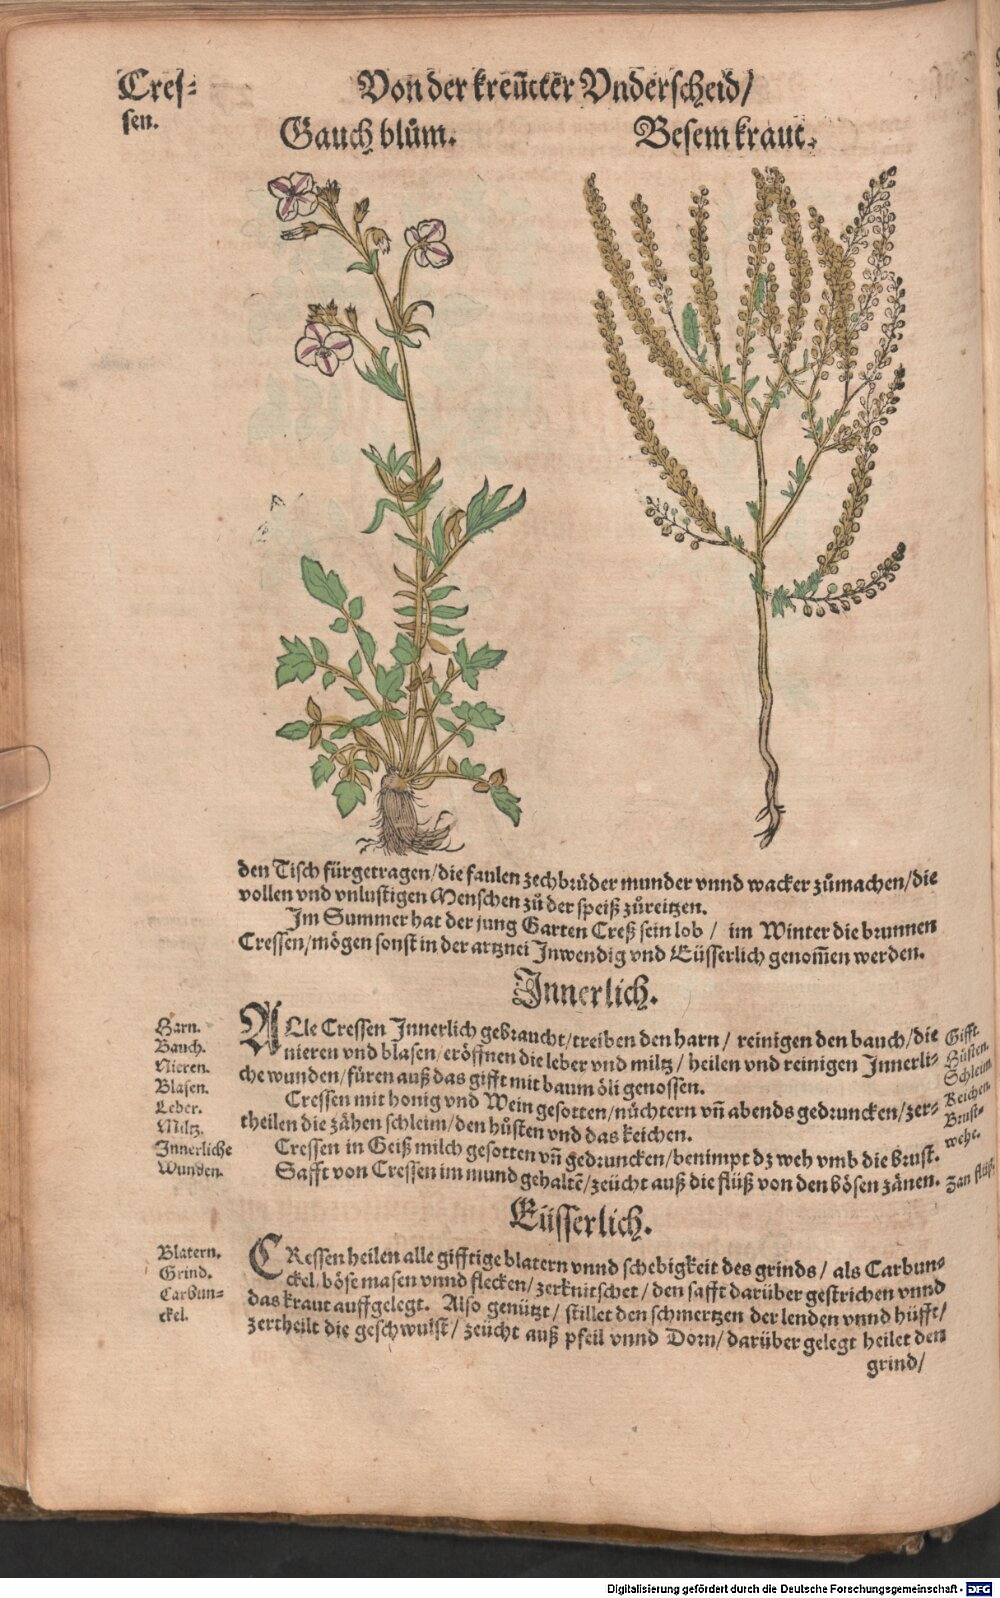 Cres-
sen.
Von der kreütter Vnderscheid/
Gauchblům.
Besemkraut.
den Tisch fürgetragen/die faulen zechbrüder munder vnnd wacker zůmachen/die
vollen vnd vnlustigen Menschen zů der speiß zůreitzen.
Im Summer hat der jung Garten Creß sein lob / im Winter die brunnen
Cressen/mögen sonst in der artznei Inwendig vnd Eüsserlich genom̃en werden.
Innerlich.
Harn.
Bauch.
Nieren.
Blasen.
Leber.
Miltz.
Innerliche
Wunden.
ALle Cressen Innerlich gebraucht/treiben den harn / reinigen den bauch/die
nieren vnd blasen/eröffnen die leber vnd miltz / heilen vnd reinigen Innerli-
che wunden/füren auß das gifft mit baum öli genossen.
Cressen mit honig vnd Wein gesotten/nüchtern vñ abends gedruncken/zer-
theilen die zähen schleim/den hůsten vnd das keichen.
Cressen in Geiß milch gesotten vñ gedruncken/benimpt dz weh vmb die brust.
Safft von Cressen im mund gehaltẽ/zeücht auß die flüß von den bösen zänen.
Gifft.
Hůsten.
Schleim
Keichen.
Brust-
wehe.
Zan flüß.
Eüsserlich.
Blatern.
Grind.
Carbun-
ckel.
CRessen heilen alle gifftige blatern vnnd schebigkeit des grinds / als Carbun-
ckel, böse masen vnnd flecken/ zerknitschet / den safft darüber gestrichen vnnd
das kraut auffgelegt. Also genützt / stillet den schmertzen der lenden vnnd hüfft/
zertheilt die geschwulst / zeücht auß pfeil vnnd Dorn/ darüber gelegt heilet den
grind/
Digitalisierung gefördert durch die Deutsche Forschungsgemeinschaft - DFG